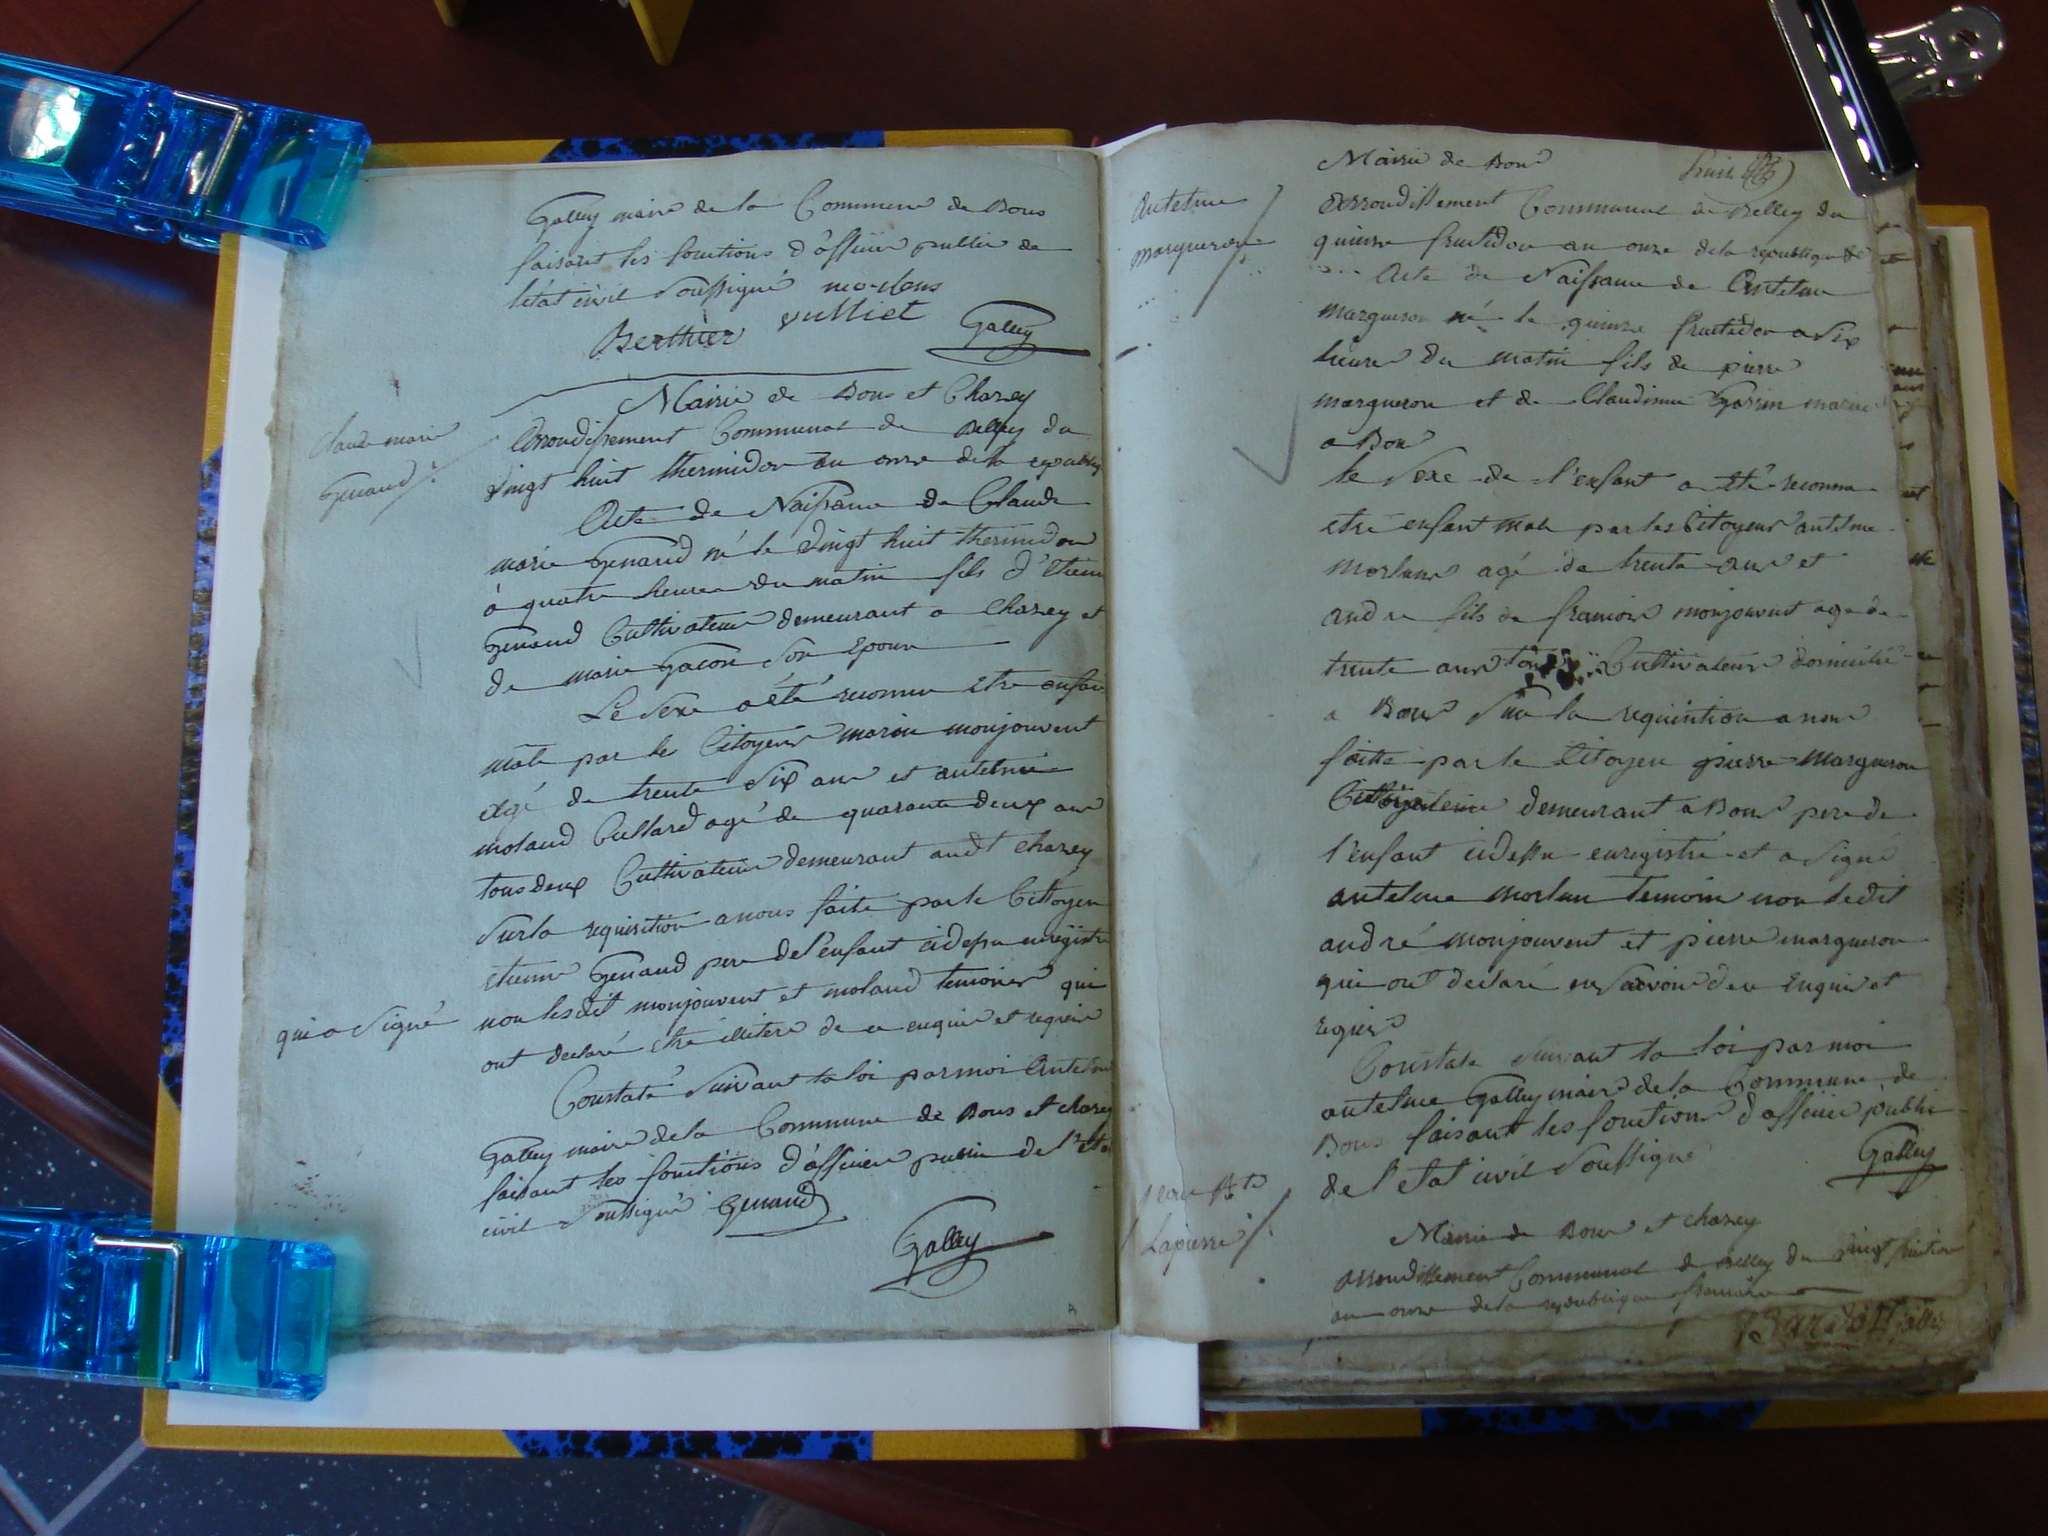 Gallay maire de la Commune de Bons
faisant les fonctions d'officier public de
letat civil soussigné
Berthier vulliet Gallay
Mairie de Bons et Chazey
Claude marie
Genaud
Arrondissement Communal de Belley du
vingt huit thermidor an onze de la
Acte de Naissance de Claude
marie Genaud né le vingt huit thermidor
à quatre heures du matin fils d'Etienne
Genaud Cultivateur demeurant a Chazey et
de marie Gacon son Epouse
Le sexe a été reconnu etre enfant
mâle par les Citoyens marin monjouvent
agé de trente six ans et antelme
molaud Cullard agé de quarante deux ans
tous deux Cultivateurs demeurant audt Chazey
Sur la requisition a nous faite par le Cittoyen
etienne Genaud pere de l'enfant cidessu enregistré
qui a signé
non lesdit monjouvent et molaud temoins qui
ont declaré etre illitere de ce enquis et requis
Constaté suivant la loi par moi Antelme
Gallay maire de la Commune de Bons et chazey
faisant les fonctions d'officier public de l'Etat
civil soussigné Genaud
Gallay
Mairie de Bons
antelme
margueron
Arrondissement Communal de Belley du
quinze fructidor an onze de la republique
Acte de Naissance de Antelme
margueron né le quinze fructidor a six
heures du matin fils de pierre
margueron et de Claudinne marié
a Bons
le sexe de l'enfant a été reconnu
etre enfant male par les Citoyens antelme
morlun agé de trente ans et
andre fils de francois monjouvent age de
trente ans Cultivateurs domicilié
a Bons sur la requisition a nous
faitte par le Citoyen pierre margueron
demeurant a Bons pere de
l'enfant cidessu enregistré et a signé
antelme morlun temoin non ledit
andré monjouvent et pierre margueron
qui ont declaré ne savoir de ce Enquis et
requis
Constaté suivant la loi par moi
antelme Gallay maire de la Commune de
Bons faisant les fonctions d'officier public
de l'etat civil soussigné Gallay
Lapierre
Mairie de Bons et chazey
arrondissement Communal de Belley du vingt
an onze de la republique francaise